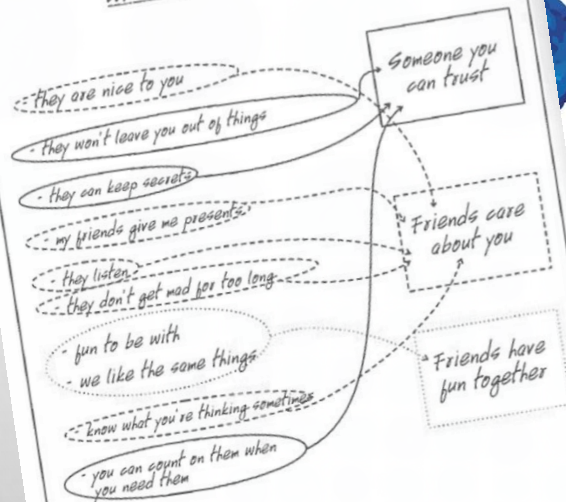 - they are nice to you
- they won't leave you out of things
- they can keep secrets
- my friends give me presents
- they listen
- they don't get mad for too long
- fun to be with
- we like the same things
- know what you're thinking sometimes
- you can count on them when
you need them
Someone you
can trust
Friends care
about you
Friends have
fun together